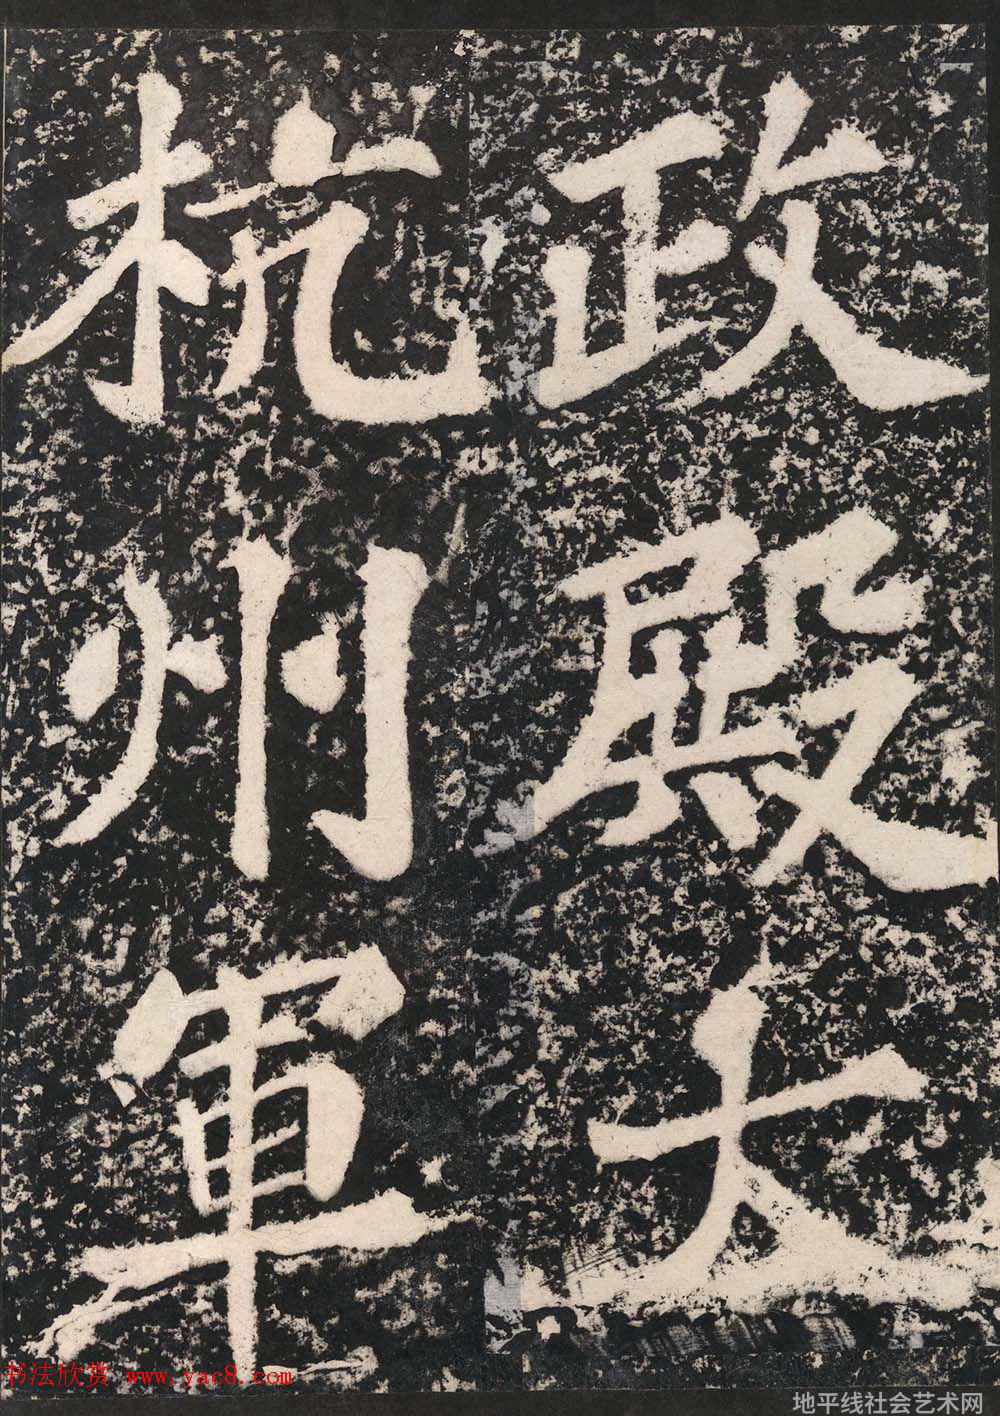 政殿大
杭州軍
书法欣赏 www.yac8.com
地平线社会艺术网